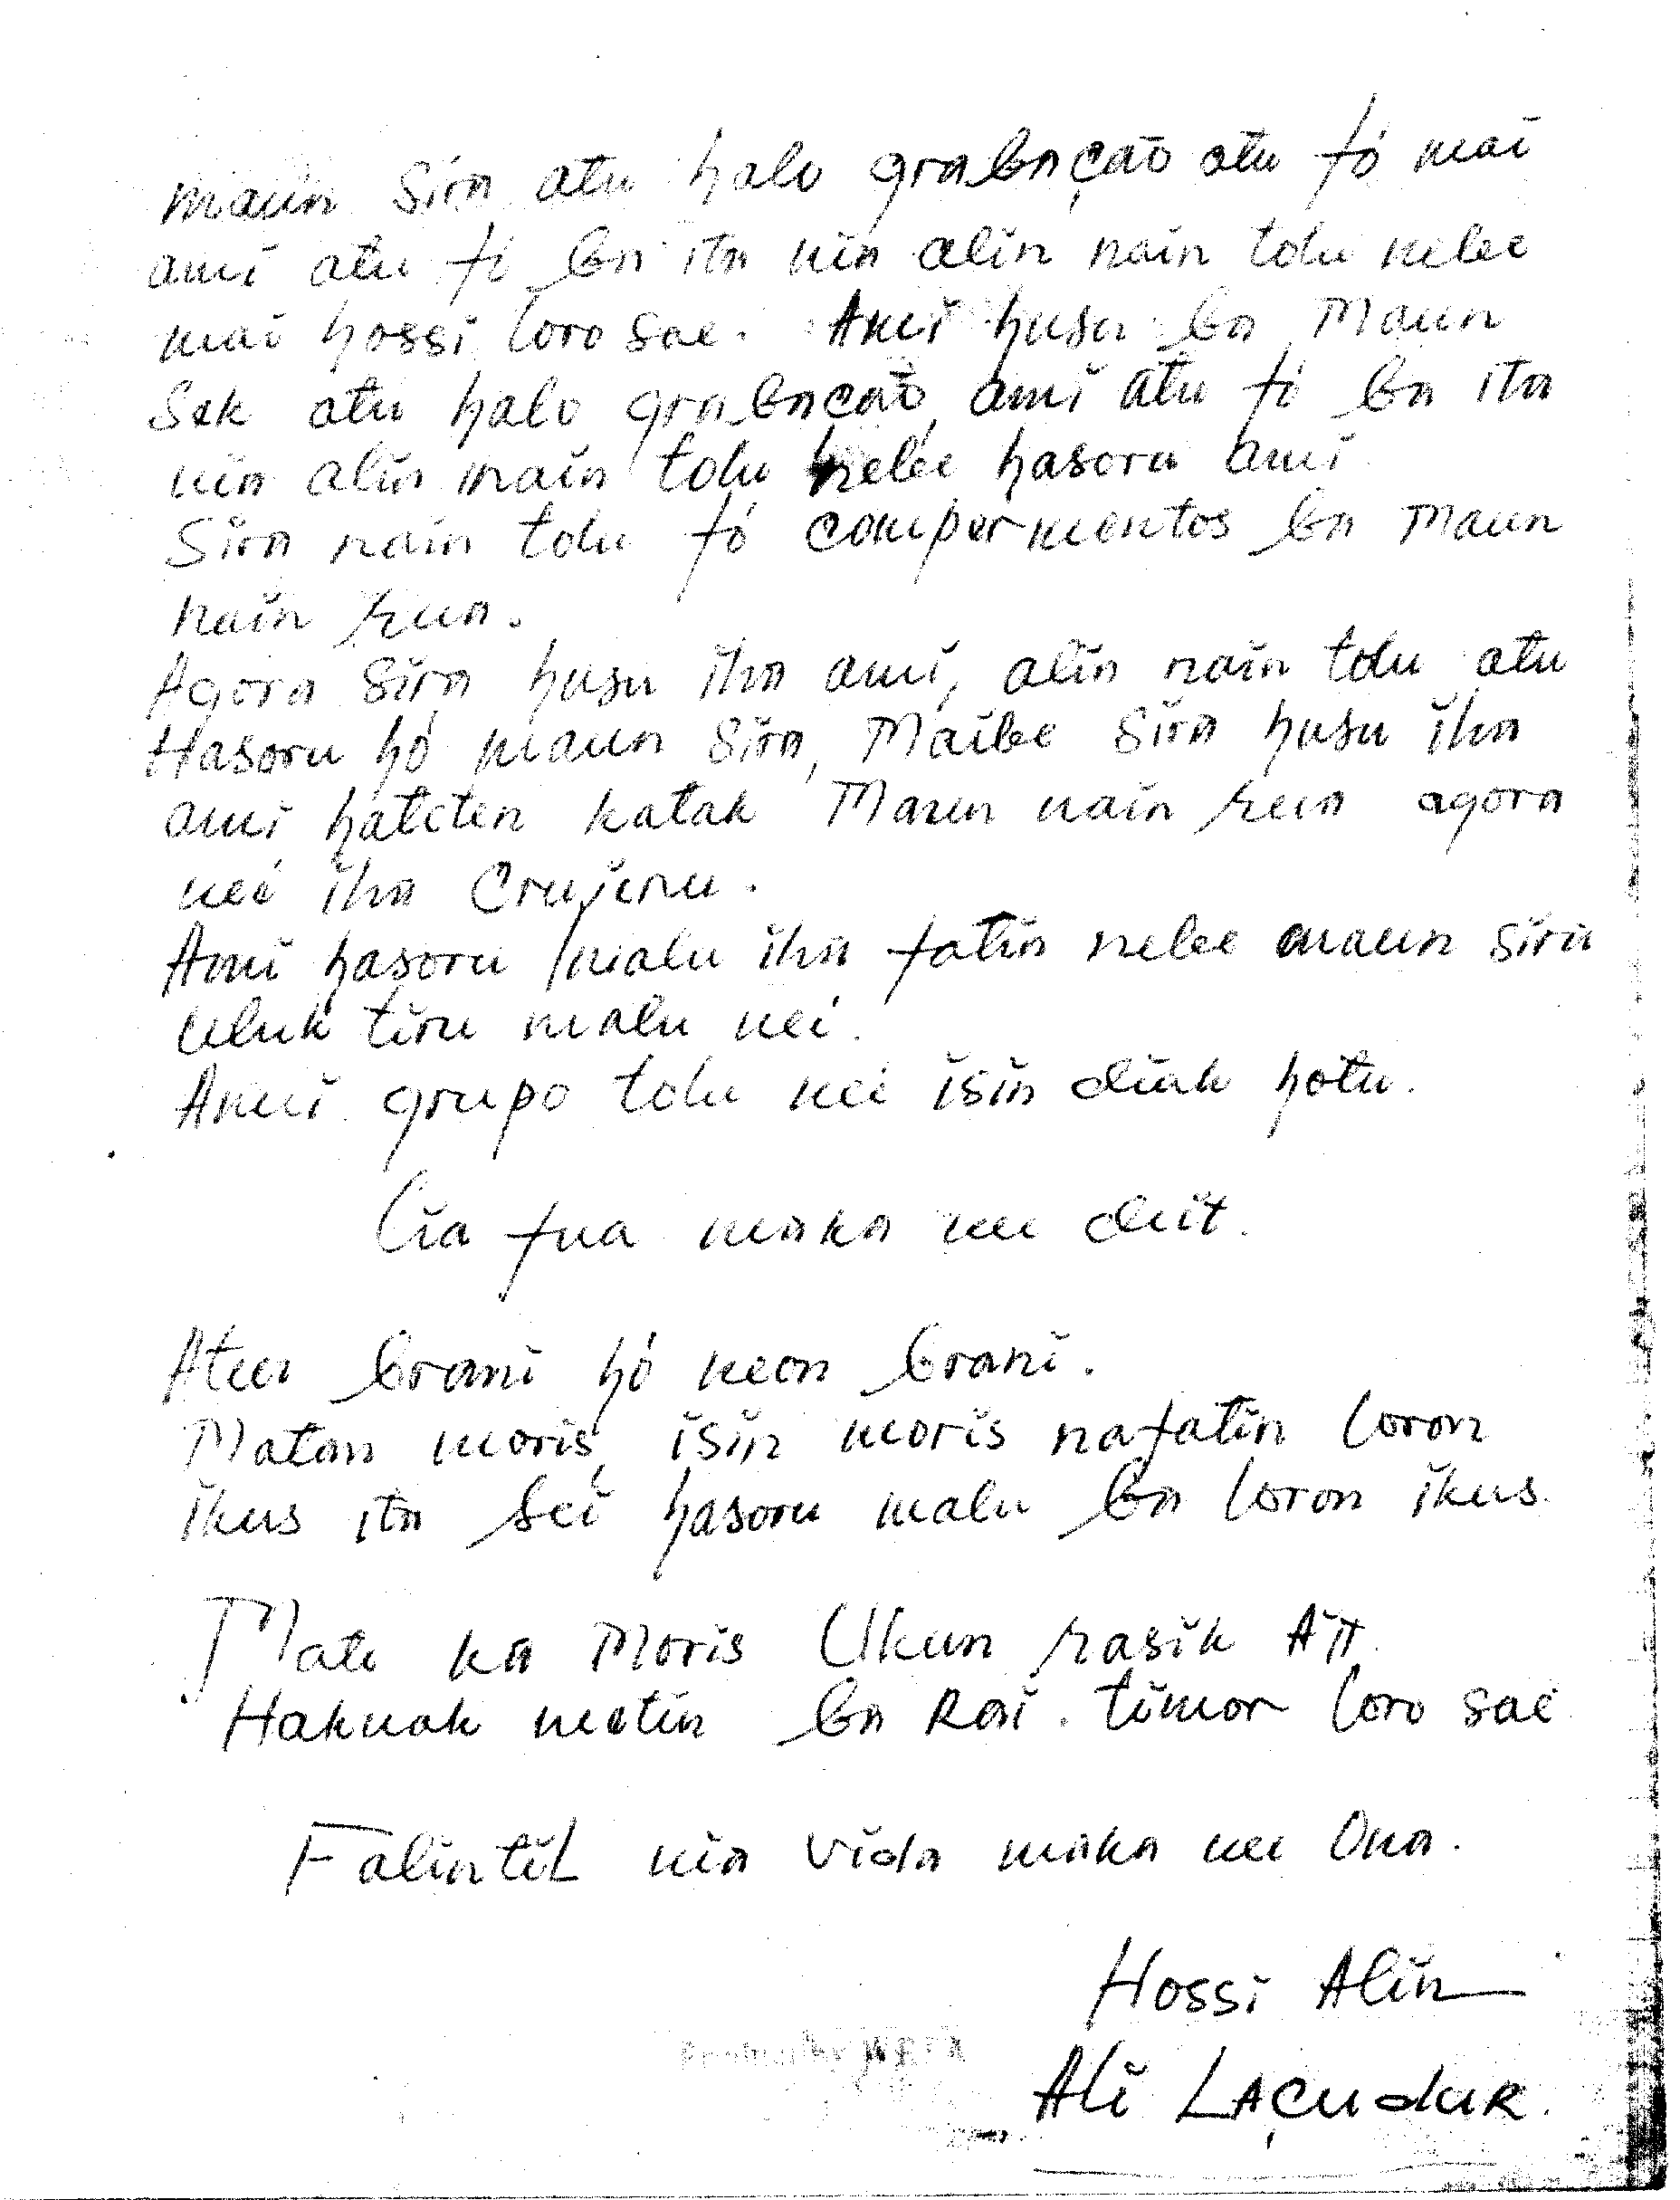 Maun Sira atu halo grabação atu fó mai
ami atu fó ba ita nia alin nain tolu nebe
mai hossi loro sae. Ami husu ba Maun
Sek atu halo grabação, ami atu fó ba ita
nia alin nain tolu nebe hasoru ami
Sira nain tolu fó compermentos ba Maun
nain rua.
Agora Sira husu iha ami, alin nain tolu atu
Hasoru hó maun Sira, Maibe Sira husu iha
ami hateten katak Maun nain rua agora
neé iha Crujeru.
Ami hasoru malu iha fatin nebe maun sira
uluk tiru malu neé.
Ami grupo tolu neé isin diak hotu.
Lia fua maka ne deit.
Aten brani hó neon brani.
Matan moris, isin moris nafatin loron
ikus ita sei hasoru malu ba loron ikus.
Mate ka Moris Ukun rasik A'n
Hakuak metin ba Rai. timor loro saé
FalintiL nia vida maka ne Ona.
Hossi Alin
Ali LAÇudur.